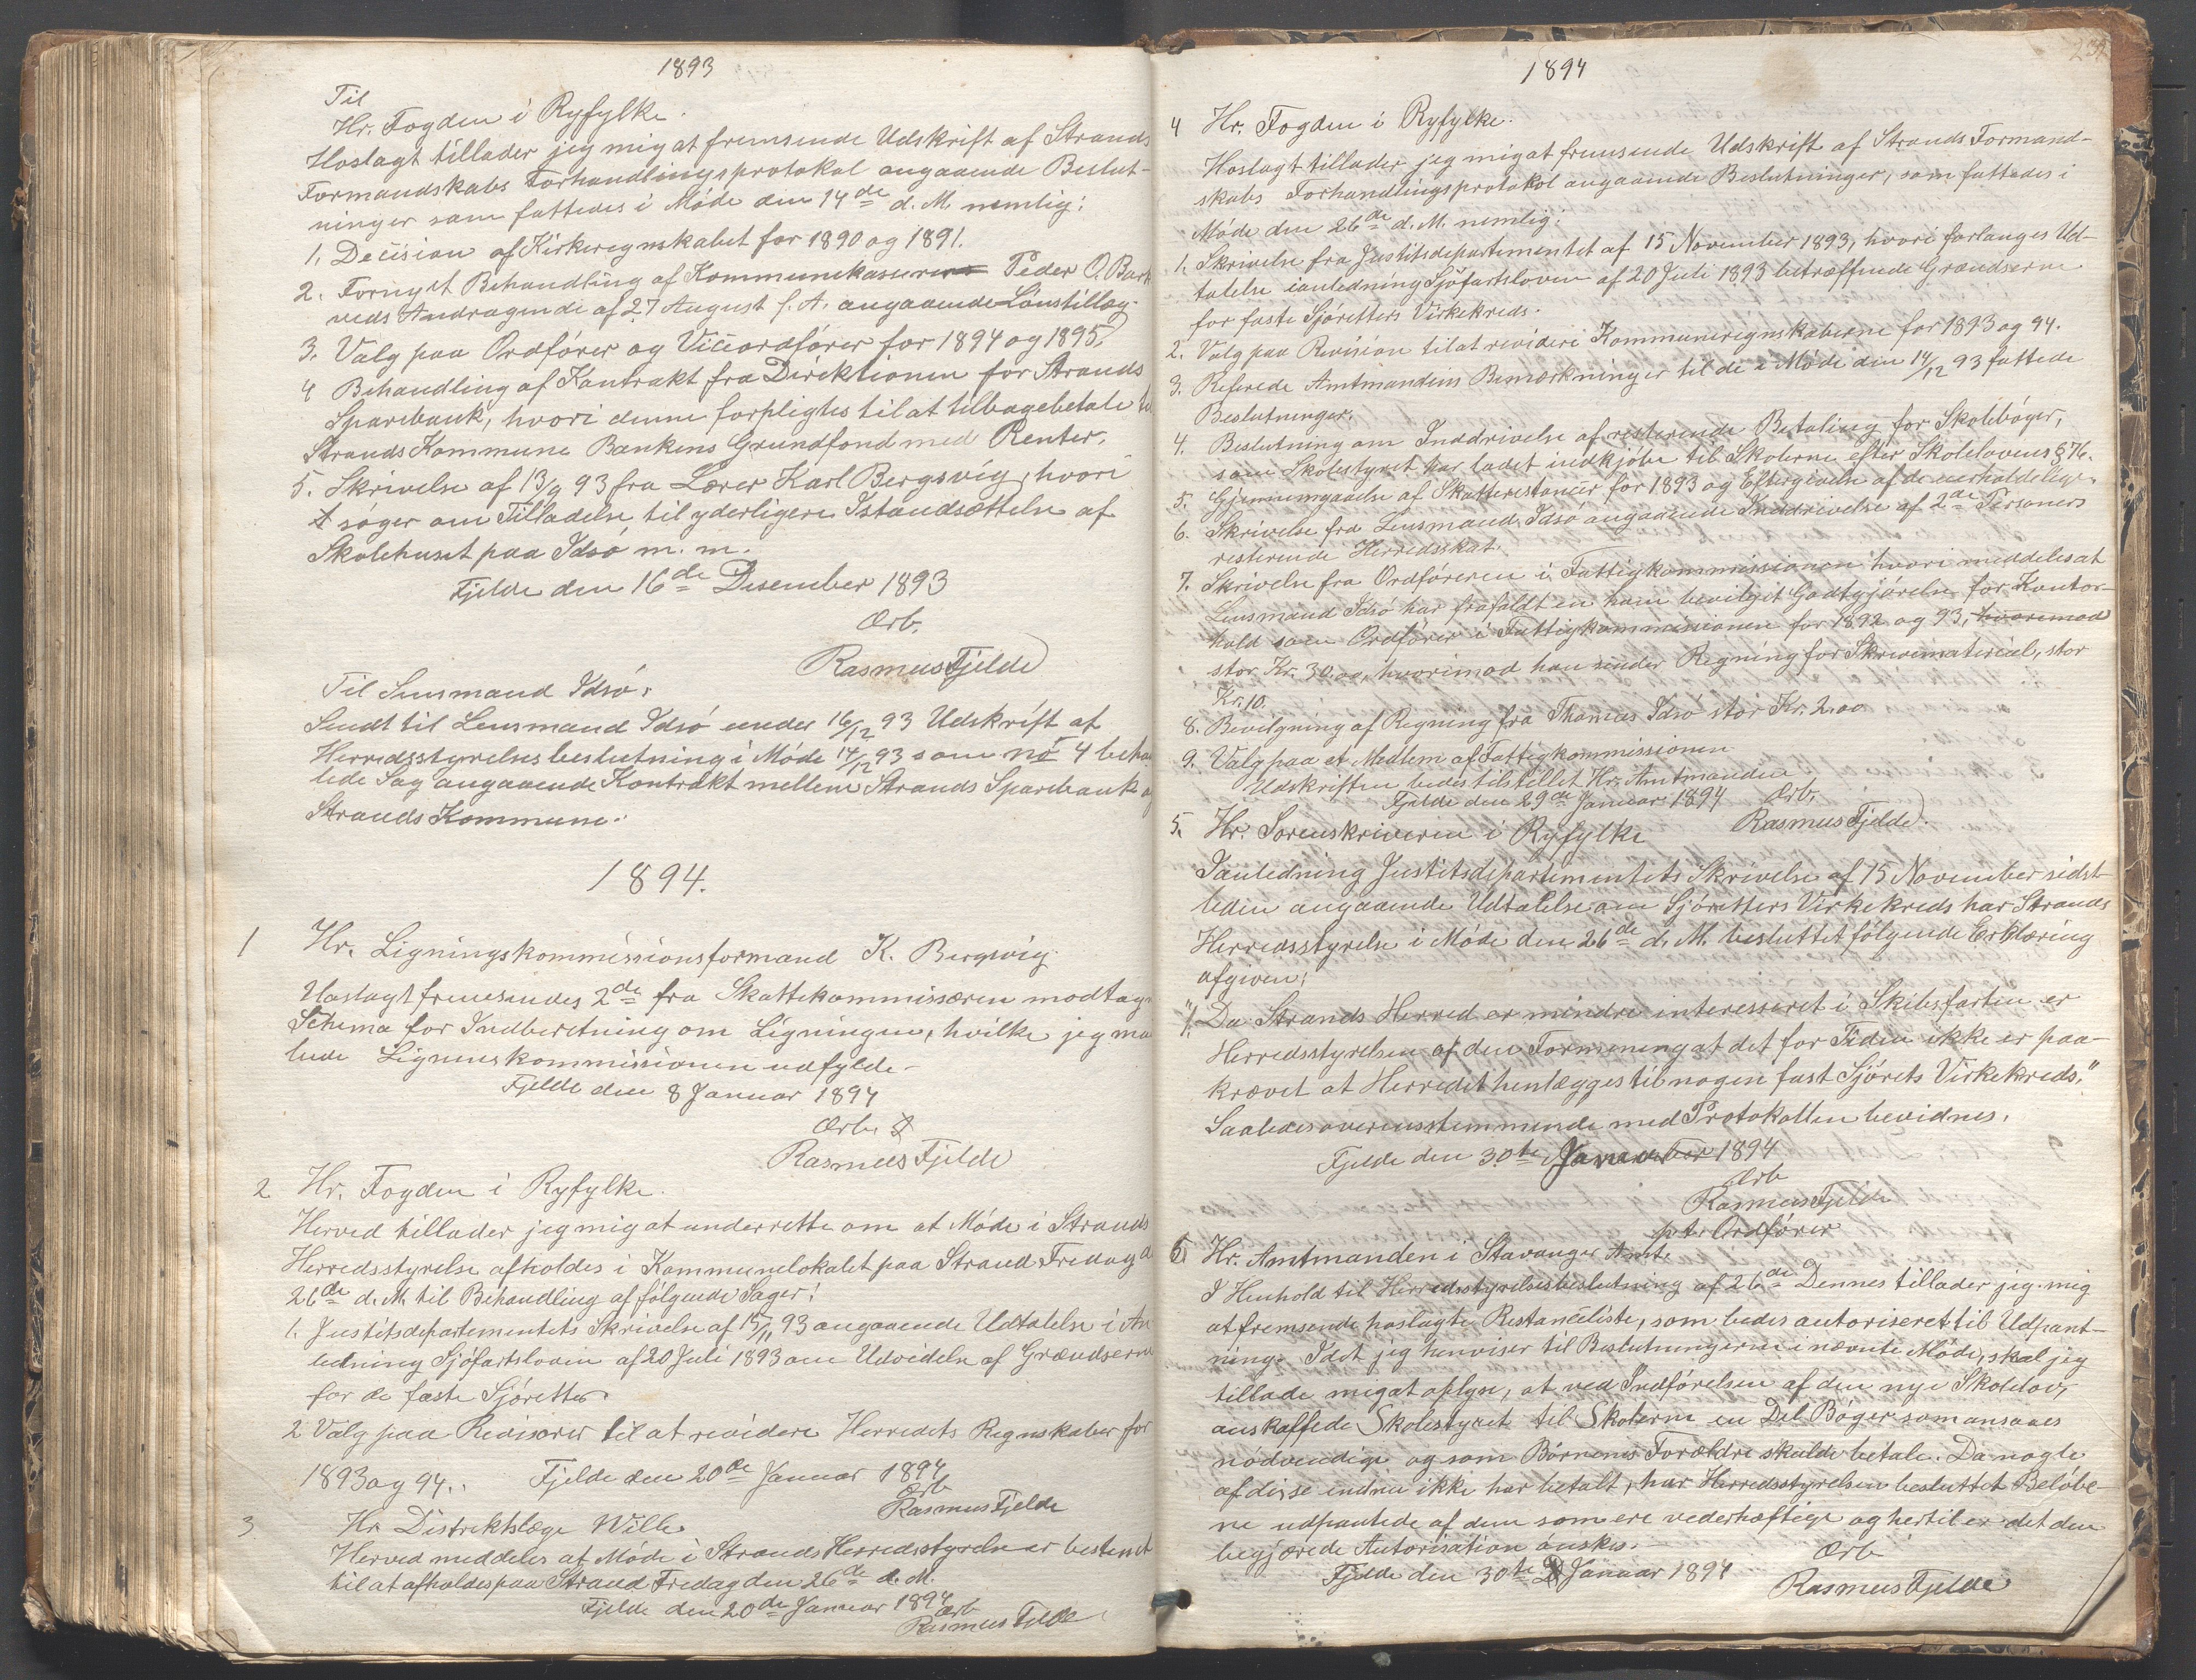 1893
Til
Hr. Fogden i Ryfylke.
Hoslagt tillader jeg mig at fremsende Udskrift af Strands
Formandskabs Forhandlingsprotokol angaaende Beslut-
ninger som fattedes i Møde den 14de d. M. nemlig:
1. Decision af Kirkeregnskabet for 1890 og 1891.
2. Fornyet Behandling af Kommunekasserer Peder O. Bark
veds Andragende af 27 August f. A. angaaende Lønstillæg.
3. Valg paa Ordfører og Viceordfører for 1894 og 1895.
4 Behandling af Kontrakt fra Direktionen for Strands
Sparebank, hvori denne forpligtes til at tilbagebetale til
Strands Kommune Bankens Grundfond med Renter.
5. Skrivelse af 13/9 93 fra Lærer Karl Bergsvig, hvori
søger om Tilladelse til yderligere Istandsættelse af
Skolehuset paa Idsø m. m.
Fjelde den 16de Desember 1893
Ærb.
Rasmus Fjelde
Til Lensmand Idsø.
Sendt til Lensmand Idsø under 16/12 93 Udskrift af
Herredsstyrelsesbeslutning i Møde 14/12 93 som no 4 behan
lede Sag angaaende Kontrakt mellem Strands Sparebank og
Strands Kommune.
1894.
1 Hr. Ligningskommissionsformand K. Bergsvig.
Hoslagt fremsendes 2de fra Skattekommissæren modtagne
Schema for Indberetning om Ligningen, hvilke jeg maa
bede Lignenskommissionen udfylde.
Fjelde den 8 Januar 1894
Ærb.
Rasmus Fjelde
2 Hr. Fogden i Ryfylke.
Herved tillader jeg mig at underrette om at Møde i Strands
Herredsstyrelse afholdes i Kommunelokalet paa Strand Fredag d
26de d. M. til Behandling af følgende Sager:
1. Justitsdepartementets Skrivelse af 15/11 93 angaaende Udtalelse i An
ledning Sjøfartsloven af 20 Juli 1893 om Udvidelse af Grændserne
for de faste Sjøretter.
2 Valg paa Revisorer til at revidere Herredets Regnskaber for
1893 og 94. Fjelde den 20de Januar 1894
Ærb
Rasmus Fjelde
3 Hr. Distriktslæge Wille
Herved meddeles at Møde i Strands Herredsstyrelse er bestemt
til at afholdes paa Strand Fredag den 26de d. M.
Fjelde den 20de Januar 1894
Ærb
Rasmus Fjelde
1894
4 Hr. Fogden i Ryfylke.
Hoslagt tillader jeg mig at fremsende Udskrift af Strands Formand-
skabs Forhandlingsprotokol angaaende Beslutninger, som fattedes i
Møde den 26de d. M. nemlig:
1. Skrivelse fra Justitsdepartementet af 15 November 1893, hvori forlanges Ud-
talelse ianledning Sjøfartsloven af 20 Juli 1893 betræffende Grændserne
for faste Sjøretters Virkekreds.
2. Valg paa Revision til at revidere Kommuneregnskaberne for 1893 og 94.
3. Referede Amtmandens Bemærkninger til de i Møde den 14/12 93 fattede
Beslutninger.
4. Beslutning om Inddrivelse af resterende Betaling for Skolebøger,
som Skolestyret har ladet indkjøbe til Skolerne efter Skolelovens § 76.
5. Gjennemgaaelse af Skatterestancer for 1893 og Eftergivelse af de uerholdelige.
6. Skrivelse fra Lensmand Idsø angaaende Inddrivelse af 2de Personers
resterende Herredsskat.
7. Skrivelse fra Ordføreren i Fattigkommissionen hvori meddeles at
Lensmand Idsø har frafaldt en ham bevilget Godtgjørelse for Kontor-
hold som Ordfører i Fattigkommissionen for 1892 og 93, hvorimod
stor Kr. 30.00, hvorimod han sender Regning for Skrivemateriel, stor
Kr. 10.
8. Bevilgning af Regning fra Thomas Idsø stor Kr. 2.00
9. Valg paa et Medlem af Fattigkommissionen
Udskriften bedes tilstillet Hr. Amtmanden
Fjelde den 29de Januar 1894 Ærb.
Rasmus Fjelde.
5. Hr. Sorenskriveren i Ryfylke
Ianledning Justitsdepartementets Skrivelse af 15 November sidst-
leden angaaende Udtalelse om Sjøretters Virkekreds har Strands
Herredsstyrelse i Møde den 26de d. M. besluttet følgende Erklæring
afgiven:
1. "Da Strands Herred er mindre interesseret i Skibsfarten er
Herredsstyrelsen af den Formening at det for Tiden ikke er paa-
krævet at Herredet henlægges til nogen fast Sjørets Virkekreds."
Saaledes overensstemmende med Protokollen bevidnes.
Fjelde den 30te Januar 1894
Ærb
Rasmus Fjelde
p.t. Ordfører
6. Hr. Amtmanden i Stavanger Amt.
I Henhold til Herredsstyrelsesbeslutning af 26de Dennes tillader jeg mig
at fremsende hoslagte Restanceliste, som bedes autoriseret til Udpant-
ning. Idet jeg henviser til Beslutningerne i nævnte Møde, skal jeg
tillade mig at oplyse, at ved Indførelsen af den nye Skolelov,
anskaffede Skolestyret til Skolerne en Del Bøger som ansaaes
nødvendige og som Børnenes Forældre skulde betale. Da nogle
af disse endnu ikke har betalt, har Herredsstyrelsen besluttet Beløbe-
ne udpantede af dem som ere vederhæftige og hertil er det den
begjærede Autorisation ønskes.
Fjelde den 30te Januar 1894 Ærb
Rasmus Fjelde